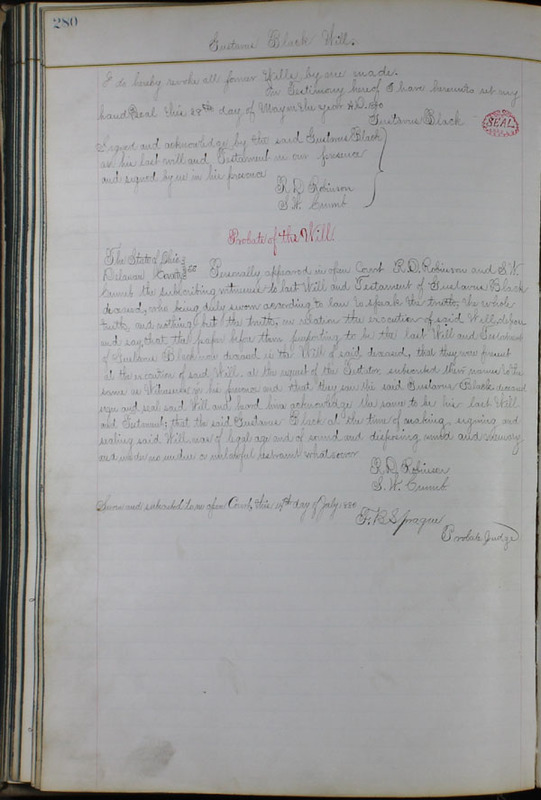 280
Gustavus Black Will.
I do hereby revoke all former Wills by me made.
In Testimony hereof I have hereunto set my
hand & seal this 28th day of May in the year A.D. 1880
Gustavus Black
SEAL
Signed and acknowledge by the said Gustavus Black
as his last will and Testament in our presence
and signed by us in his presence
R. D. Robinson
S. W. Crumb
Probate of the Will.
The State of Ohio
Delaware County ss Personally appeared in open Court R. D. Robinson and S. W.
Crumb the subscribing witnesses to last Will and Testament of Gustavus Black
deceased, who being duly sworn according to law to speak the truth, the whole
truth, and nothing but the truth, in relation the execution of said Will, depose
and say, that the paper before them purporting to be the last Will and Testament
of Gustavus Black now deceased is the Will of said deceased, that they were present
at the execution of said Will at the request of the Testator subscribed their names to the
same as Witnesses in his presence and that they saw the said Gustavus Black deceased
sign and seal said Will and heard him acknowledge the same to be his last Will
and Testament; that the said Gustavus Black at the time of making, signing and
sealing said Will was of legal age and of sound and disposing mind and memory
and under no undue or unlawful restraint whatsoever
R. D. Robinson
S. W. Crumb
Sworn and subscribed to in open Court, this day of July 1880
F. B. Sprague
Probate Judge